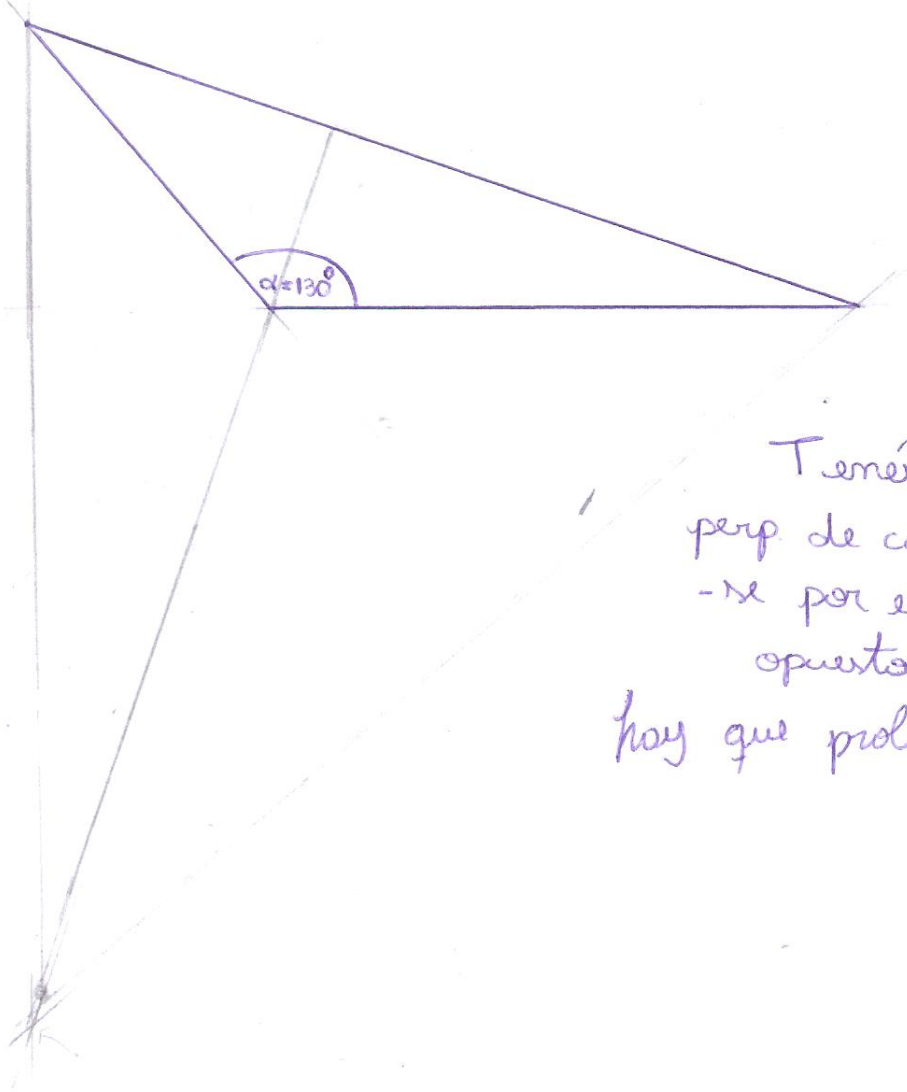 α=130°
Tené
perp de c
-se por e
opuesto
hay que prol